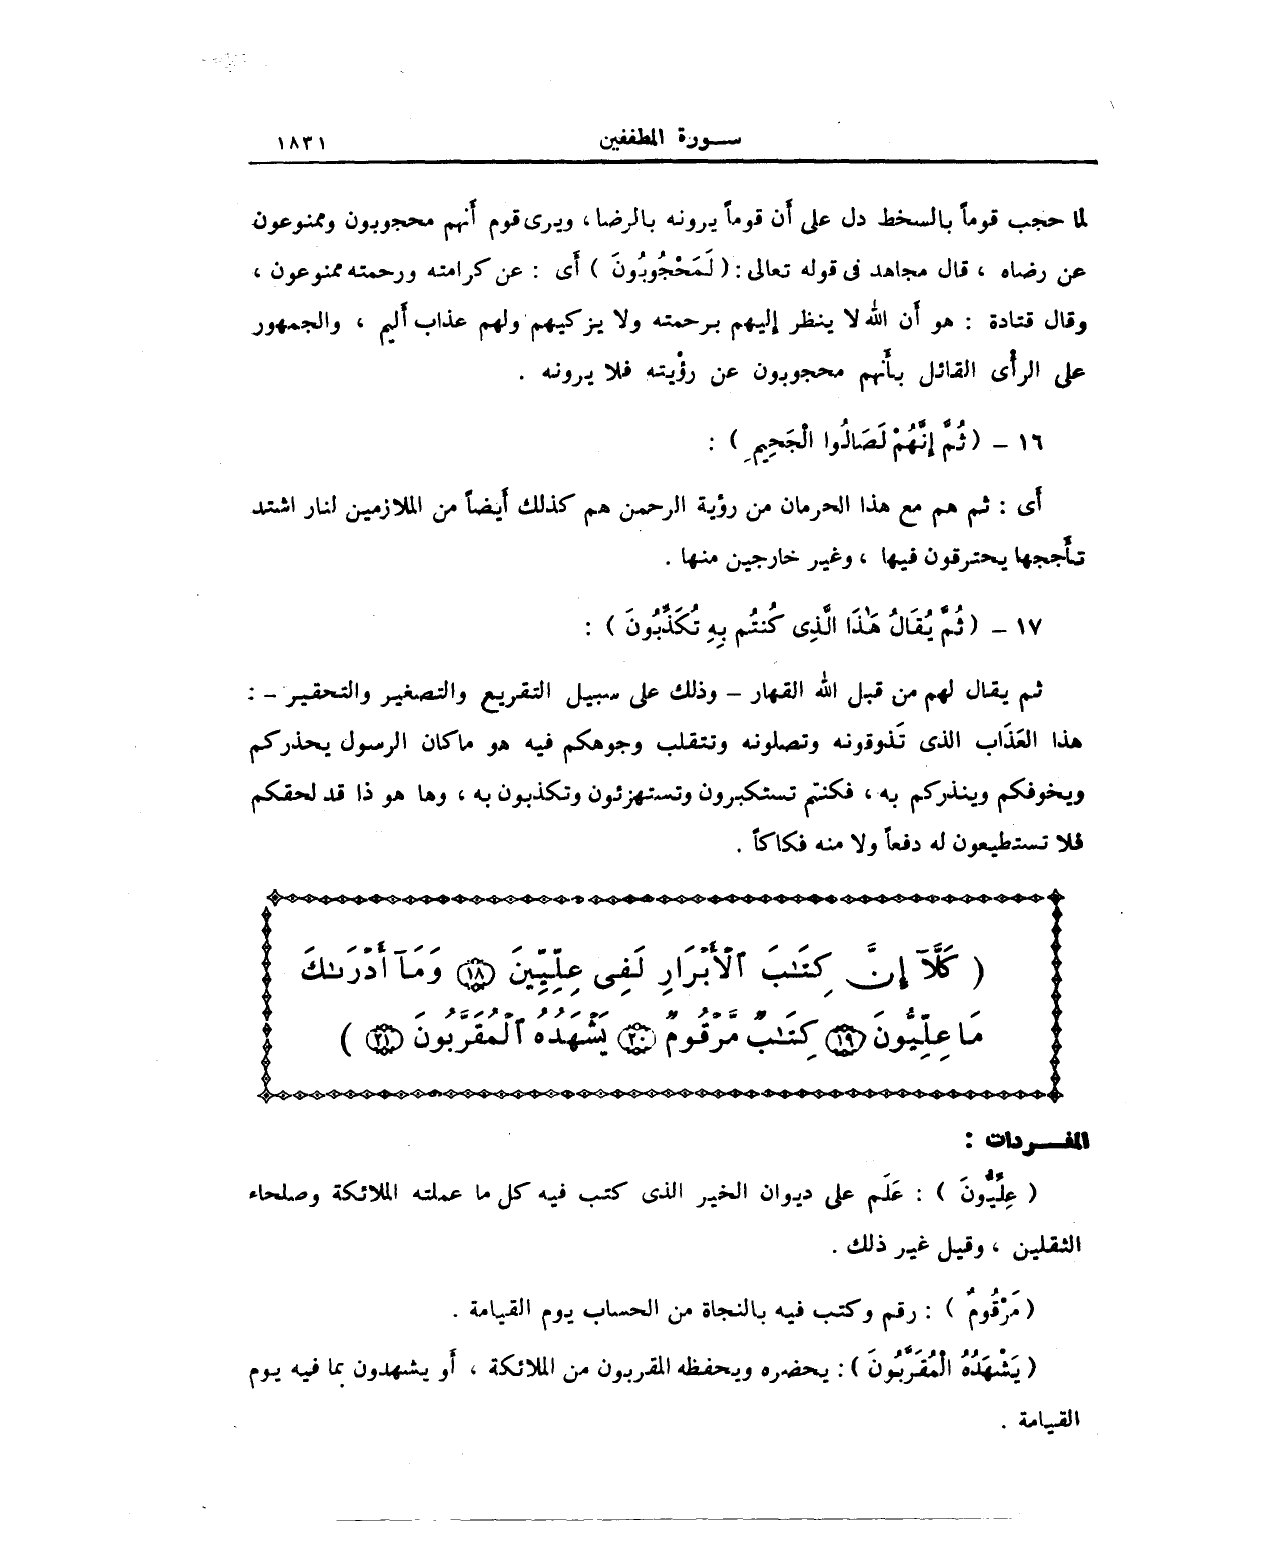 سورة المطففين ١٨٣١
لما حجب قوماً بالسخط دل على أن قوماً يرونه بالرضا، ويرى قوم أنهم محجوبون وممنوعون
عن رضاه ، قال مجاهد فى قوله تعالى : ( لَمَحْجُوبُونَ ) أى : عن كرامته ورحمته ممنوعون ،
وقال قتادة : هو أن الله لا ينظر إليهم برحمته ولا يزكيهم ولهم عذاب أليم ، والجمهور
على الرأى القائل بأنهم محجوبون عن رؤْيته فلا يرونه .
١٦ – ( ثُمَّ إِنَّهُمْ لَصَالُوا الْجَحِيمِ ) :
أى : ثم هم مع هذا الحرمان من رؤية الرحمن هم كذلك أيضاً من الملازمين لنار اشتد
تأججها يحترقون فيها ، وغير خارجين منها .
١٧ – ( ثُمَّ يُقَالُ هَٰذَا الَّذِى كُنتُم بِهِ تُكَذِّبُونَ ) :
ثم يقال لهم من قبل الله القهار – وذلك على سبيل التقريع والتصغير والتحقير – :
هذا العَذَاب الذى تَذوقونه وتصلونه وتتقلب وجوهكم فيه هو ماكان الرسول يحذركم
ويخوفكم وينذركم به ، فكنتم تستكبرون وتستهزئون وتكذبون به ، وها هو ذا قد لحقكم
فلا تستطيعون له دفعاً ولا منه فكاكاً .
( كَلَّآ إِنَّ كِتَٰبَ ٱلْأَبْرَارِ لَفِى عِلِّيِّينَ ١٨ وَمَآ أَدْرَىٰكَ
مَا عِلِّيُّونَ ١٩ كِتَٰبٌ مَّرْقُومٌ ٢٠ يَشْهَدُهُ ٱلْمُقَرَّبُونَ ٢١ )
المفــردات :
( عِلِّيُّونَ ) : عَلَم على ديوان الخير الذى كتب فيه كل ما عملته الملائكة وصلحاء
الثقلين ، وقيل غير ذلك .
( مَرْقُومٌ ) : رقم وكتب فيه بالنجاة من الحساب يوم القيامة .
( يَشْهَدُهُ الْمُقَرَّبُونَ ) : يحضره ويحفظه المقربون من الملائكة ، أو يشهدون بما فيه يوم
القيامة .